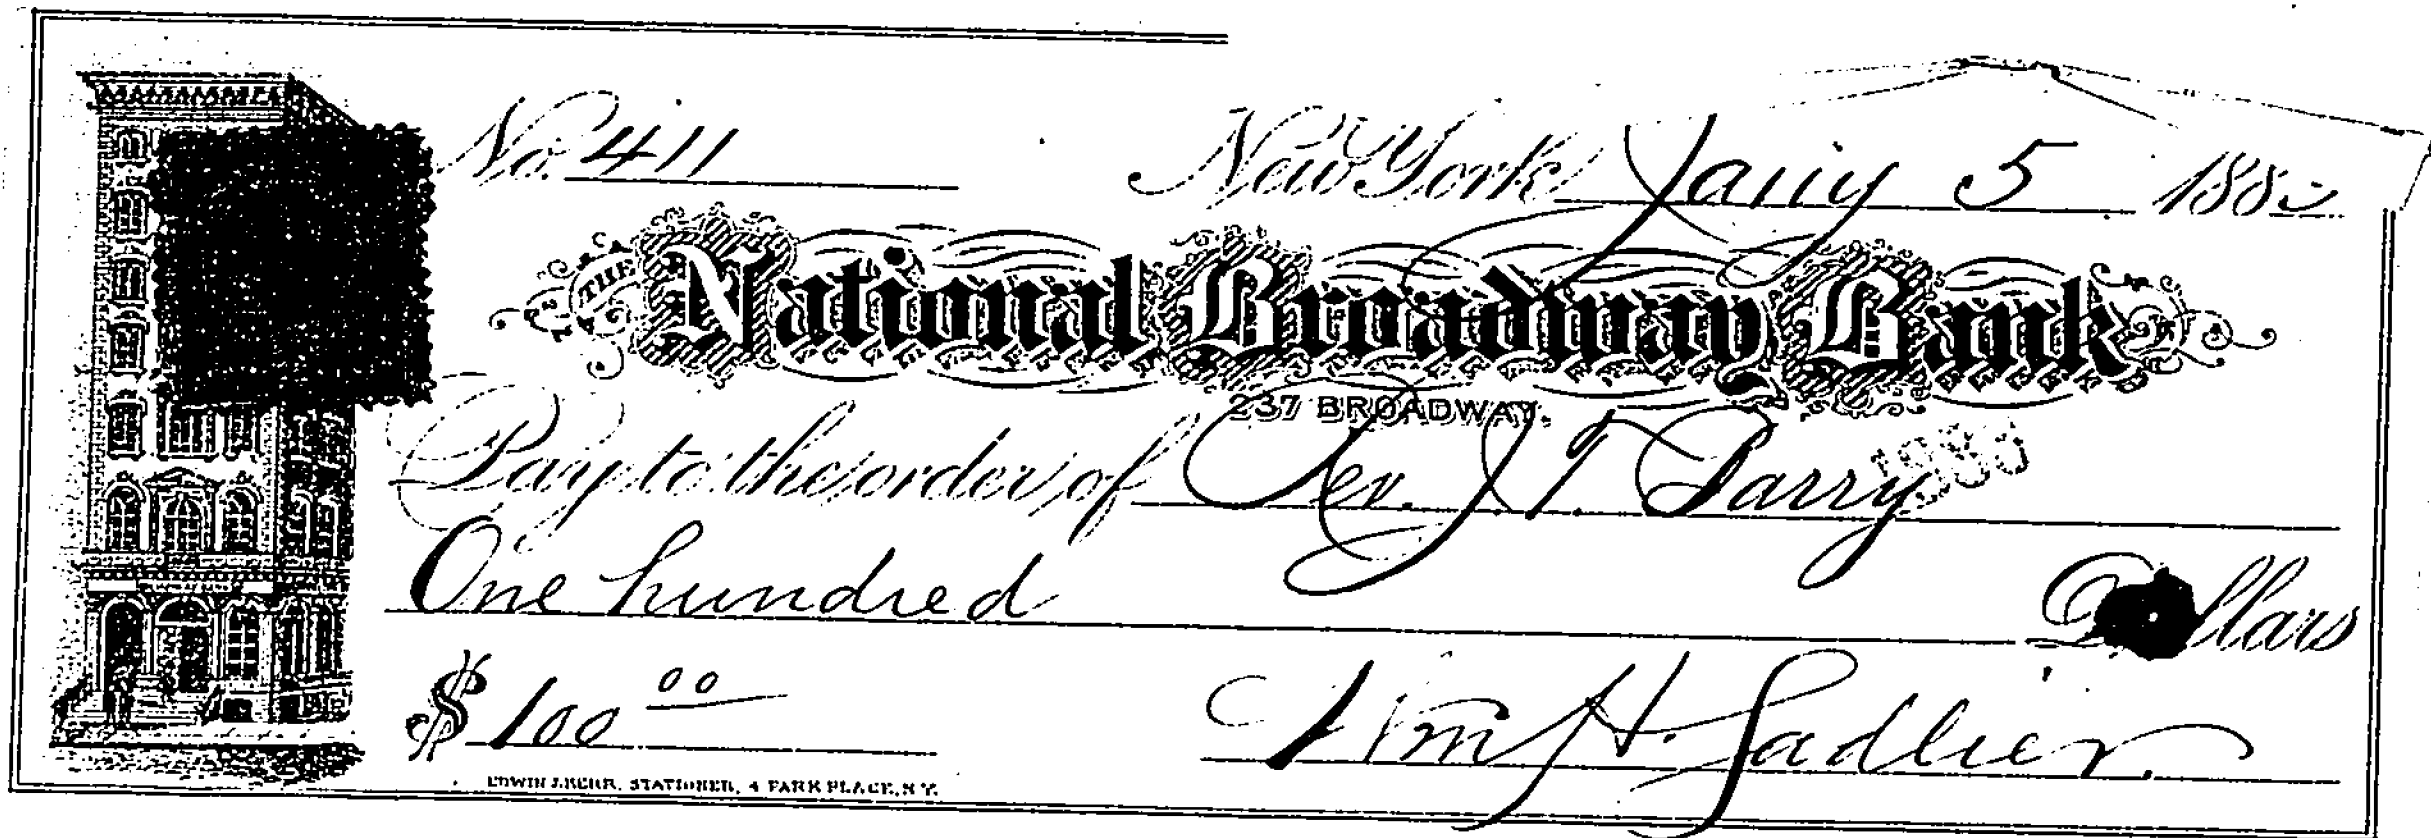 No. 411
New York Jany 5 188
THE National Broadway Bank
237 BROADWAY.
Pay to the order of Rev. J. T. Barry
One hundred Dollars
$ 100 00
Wm H. Sadlier
EDWIN J. KERR, STATIONER, 4 PARK PLACE, N.Y.